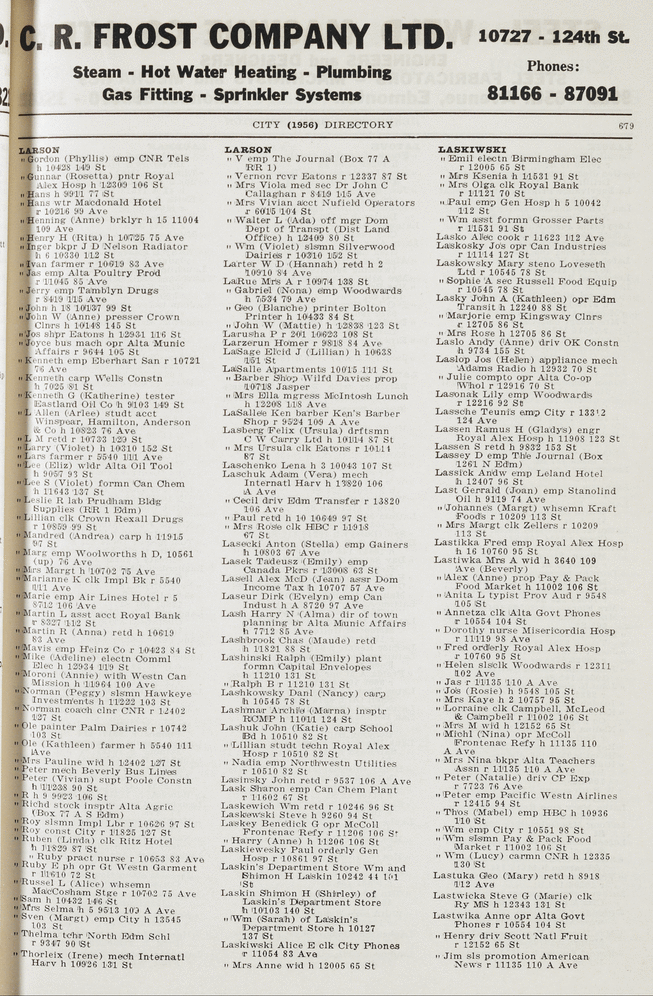 C. R. FROST COMPANY LTD. 10727 - 124th St.
Steam - Hot Water Heating - Plumbing
Gas Fitting - Sprinkler Systems
Phones:
81166 - 87091
CITY (1956) DIRECTORY 679
LARSON
" Gordon (Phyllis) emp CNR Tels
h 10428 149 St
" Gunnar (Rosetta) pntr Royal
Alex Hosp h 12309 106 St
" Hans h 9911 77 St
" Hans wtr Macdonald Hotel
r 10216 99 Ave
" Henning (Anne) brklyr h 15 11004
109 Ave
" Henry H (Rita) h 10725 75 Ave
" Inger bkpr J D Nelson Radiator
h 6 10330 112 St
" Ivan farmer r 10619 83 Ave
" Jas emp Alta Poultry Prod
r 11045 85 Ave
" Jerry emp Tamblyn Drugs
r 8419 115 Ave
" John h 18 10137 99 St
" John W (Anne) presser Crown
Clnrs h 10148 145 St
" Jos shpr Eatons h 12931 116 St
" Joyce bus mach opr Alta Munic
Affairs r 9644 105 St
" Kenneth emp Eberhart San r 10721
76 Ave
" Kenneth carp Wells Constn
h 7025 81 St
" Kenneth G (Katherine) tester
Eastland Oil Co h 9103 149 St
" L Allen (Arlee) studt acct
Winspear, Hamilton, Anderson
& Co h 10823 76 Ave
" L M retd r 10733 129 St
" Larry (Violet) h 10310 152 St
" Lars farmer r 5540 111 Ave
" Lee (Eliz) wldr Alta Oil Tool
h 9057 93 St
" Lee S (Violet) formn Can Chem
h 11643 137 St
" Leslie R lab Prudham Bldg
Supplies (RR 1 Edm)
" Lillian clk Crown Rexall Drugs
r 10859 99 St
" Mandred (Andrea) carp h 11915
97 St
" Marg emp Woolworths h D, 10561
(up) 76 Ave
" Mrs Margt h 10702 75 Ave
" Marianne K clk Impl Bk r 5540
111 Ave
" Marie emp Air Lines Hotel r 5
8712 106 Ave
" Martin L asst acct Royal Bank
r 8327 112 St
" Martin R (Anna) retd h 10619
83 Ave
" Mavis emp Heinz Co r 10423 84 St
" Mike (Adeline) electn Comml
Elec h 12934 119 St
" Moroni (Annie) with Westn Can
Mission h 11964 100 Ave
" Norman (Peggy) slsmn Hawkeye
Investments h 11222 103 St
" Norman coach clnr CNR r 12402
127 St
" Ole painter Palm Dairies r 10742
103 St
" Ole (Kathleen) farmer h 5540 111
Ave
" Mrs Pauline wid h 12402 127 St
" Peter mech Beverly Bus Lines
" Peter (Vivian) supt Poole Constn
h 11238 90 St
" R h 9 9923 106 St
" Richd stock insptr Alta Agric
(Box 77 A S Edm)
" Roy slsmn Impl Lbr r 10626 97 St
" Roy const City r 11825 127 St
" Ruben (Linda) clk Ritz Hotel
h 11829 87 St
" Ruby pract nurse r 10653 83 Ave
" Ruby E ph opr Gt Westn Garment
r 11610 72 St
" Russel L (Alice) whsemn
MacCosham Stge r 10702 75 Ave
" Sam h 10432 146 St
" Mrs Selma h 5 9513 109 A Ave
" Sven (Margt) emp City h 13545
103 St
" Thelma tchr North Edm Schl
r 9347 90 St
" Thorleix (Irene) mech Internatl
Harv h 10926 131 St
LARSON
" V emp The Journal (Box 77 A
RR 1)
" Vernon rcvr Eatons r 12337 87 St
" Mrs Viola med sec Dr John C
Callaghan r 8419 115 Ave
" Mrs Vivian acct Nufield Operators
r 6015 104 St
" Walter L (Ada) off mgr Dom
Dept of Transpt (Dist Land
Office) h 12409 80 St
" Wm (Violet) slsmn Silverwood
Dairies r 10310 152 St
Larter W D (Hannah) retd h 2
10910 84 Ave
LaRue Mrs A r 10974 138 St
" Gabriel (Nona) emp Woodwards
h 7534 79 Ave
" Geo (Blanche) printer Bolton
Printer h 10433 84 St
" John W (Mattie) h 12838 123 St
Larusha P r 201 10623 108 St
Larzerun Homer r 9818 84 Ave
LaSage Elcid J (Lillian) h 10638
151 St
LaSalle Apartments 10015 111 St
" Barber Shop Wilfd Davies prop
10718 Jasper
" Mrs Ella mgress McIntosh Lunch
h 12208 118 Ave
LaSallee Ken barber Ken's Barber
Shop r 9524 109 A Ave
Lasberg Felix (Ursula) drftsmn
C W Carry Ltd h 10114 87 St
" Mrs Ursula clk Eatons r 10114
87 St
Laschenko Lena h 3 10043 107 St
Laschuk Adam (Vera) mech
Internatl Harv h 13820 106
A Ave
" Cecil driv Edm Transfer r 13820
106 Ave
" Paul retd h 10 10649 97 St
" Mrs Rose clk HBC r 11918
67 St
Lasecki Anton (Stella) emp Gainers
h 10803 67 Ave
Lasek Tadeusz (Emily) emp
Canada Pkrs r 13008 63 St
Lasell Alex McD (Jean) assr Dom
Income Tax h 10707 57 Ave
Laseur Dick (Evelyn) emp Can
Indust h A 8720 97 Ave
Lash Harry N (Alma) dir of town
planning br Alta Munic Affairs
h 7712 85 Ave
Lashbrook Chas (Maude) retd
h 11821 88 St
Lashinski Ralph (Emily) plant
formn Capital Envelopes
h 11210 131 St
" Ralph B r 11210 131 St
Lashkowsky Danl (Nancy) carp
h 10545 78 St
Lashmar Archie (Marna) insptr
RCMP h 11011 124 St
Lashuk John (Katie) carp School
Bd h 10510 82 St
" Lillian studt techn Royal Alex
Hosp r 10510 82 St
" Nadia emp Northwestn Utilities
r 10510 82 St
Lasinsky John retd r 9537 106 A Ave
Lask Sharon emp Can Chem Plant
r 11602 67 St
Laskewich Wm retd r 10246 96 St
Laskewski Steve h 9260 94 St
Laskey Benedict G opr McColl
Frontenac Refy r 11206 106 St
" Harry (Anne) h 11206 106 St
Laskiewesky Paul orderly Gen
Hosp r 10861 97 St
Laskin's Department Store Wm and
Shimon H Laskin 10242 44 101
St
Laskin Shimon H (Shirley) of
Laskin's Department Store
h 10103 140 St
" Wm (Sarah) of Laskin's
Department Store h 10127
137 St
Laskiwski Alice E clk City Phones
r 11054 83 Ave
" Mrs Anne wid h 12005 65 St
LASKIWSKI
" Emil electn Birmingham Elec
r 12005 65 St
" Mrs Ksenia h 11531 91 St
" Mrs Olga clk Royal Bank
r 11121 70 St
" Paul emp Gen Hosp h 5 10042
112 St
" Wm asst formn Grosser Parts
r 11531 91 St
Lasko Alec cook r 11623 112 Ave
Laskosky Jos opr Can Industries
r 11114 127 St
Laskowsky Mary steno Loveseth
Ltd r 10545 78 St
" Sophie A sec Russell Food Equip
r 10545 78 St
Lasky John A (Kathleen) opr Edm
Transit h 12240 88 St
" Marjorie emp Kingsway Clnrs
r 12705 86 St
" Mrs Rose h 12705 86 St
Laslo Andy (Anne) driv OK Constn
h 9734 155 St
Laslop Jos (Helen) appliance mech
Adams Radio h 12932 70 St
" Julie compto opr Alta Co-op
Whol r 12916 70 St
Lasonak Lily emp Woodwards
r 12216 92 St
Lassche Teunis emp City r 13312
124 Ave
Lassen Ramus H (Gladys) engr
Royal Alex Hosp h 11908 123 St
Lassen S retd h 9832 153 St
Lassey D emp The Journal (Box
1261 N Edm)
Lassick Andw emp Leland Hotel
h 12407 96 St
Last Gerrald (Joan) emp Stanolind
Oil h 9119 74 Ave
" Johannes (Margt) whsemn Kraft
Foods r 10209 113 St
" Mrs Margt clk Zellers r 10209
113 St
Lastikka Fred emp Royal Alex Hosp
h 16 10760 95 St
Lastiwka Mrs A wid h 3640 109
Ave (Beverly)
" Alex (Anne) prop Pay & Pack
Food Market h 11002 106 St
" Anita L typist Prov Aud r 9548
105 St
" Annetza clk Alta Govt Phones
r 10554 104 St
" Dorothy nurse Misericordia Hosp
r 11119 98 Ave
" Fred orderly Royal Alex Hosp
r 10760 95 St
" Helen slsclk Woodwards r 12311
102 Ave
" Jas r 11135 110 A Ave
" Jos (Rosie) h 9548 105 St
" Mrs Kaye h 2 10757 95 St
" Lorraine clk Campbell, McLeod
& Campbell r 11002 106 St
" Mrs M wid h 12152 65 St
" Michl (Nina) opr McColl
Frontenac Refy h 11135 110
A Ave
" Mrs Nina bkpr Alta Teachers
Assn r 11135 110 A Ave
" Peter (Natalie) driv CP Exp
r 7723 76 Ave
" Peter emp Pacific Westn Airlines
r 12415 94 St
" Thos (Mabel) emp HBC h 10936
110 St
" Wm emp City r 10551 98 St
" Wm slsmn Pay & Pack Food
Market r 11002 106 St
" Wm (Lucy) carmn CNR h 12335
130 St
Lastuka Geo (Mary) retd h 8918
112 Ave
Lastwicka Steve G (Marie) clk
Ry MS h 12343 131 St
Lastwika Anne opr Alta Govt
Phones r 10554 104 St
" Henry driv Scott Natl Fruit
r 12152 65 St
" Jim sls promotion American
News r 11135 110 A Ave